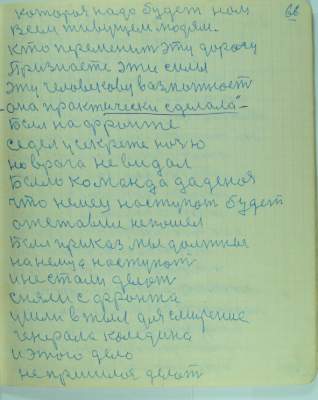 66
которая надо будет нам
всем живущем людям.
кто переменит эту дорогу
Признаете эти силы
эту человекову вазможност
она практически сделала"-
Был на фронте
седел у секрете ночю
новрага не видал
Была команда даденоя
что немец наступат будет
ожетавши непошел
Был приказ мы должны
нанемца наступат
инестали делат
сняли с фронта
ушли втил для смирение
генерала каледина
и этого дело
не пришлос делат